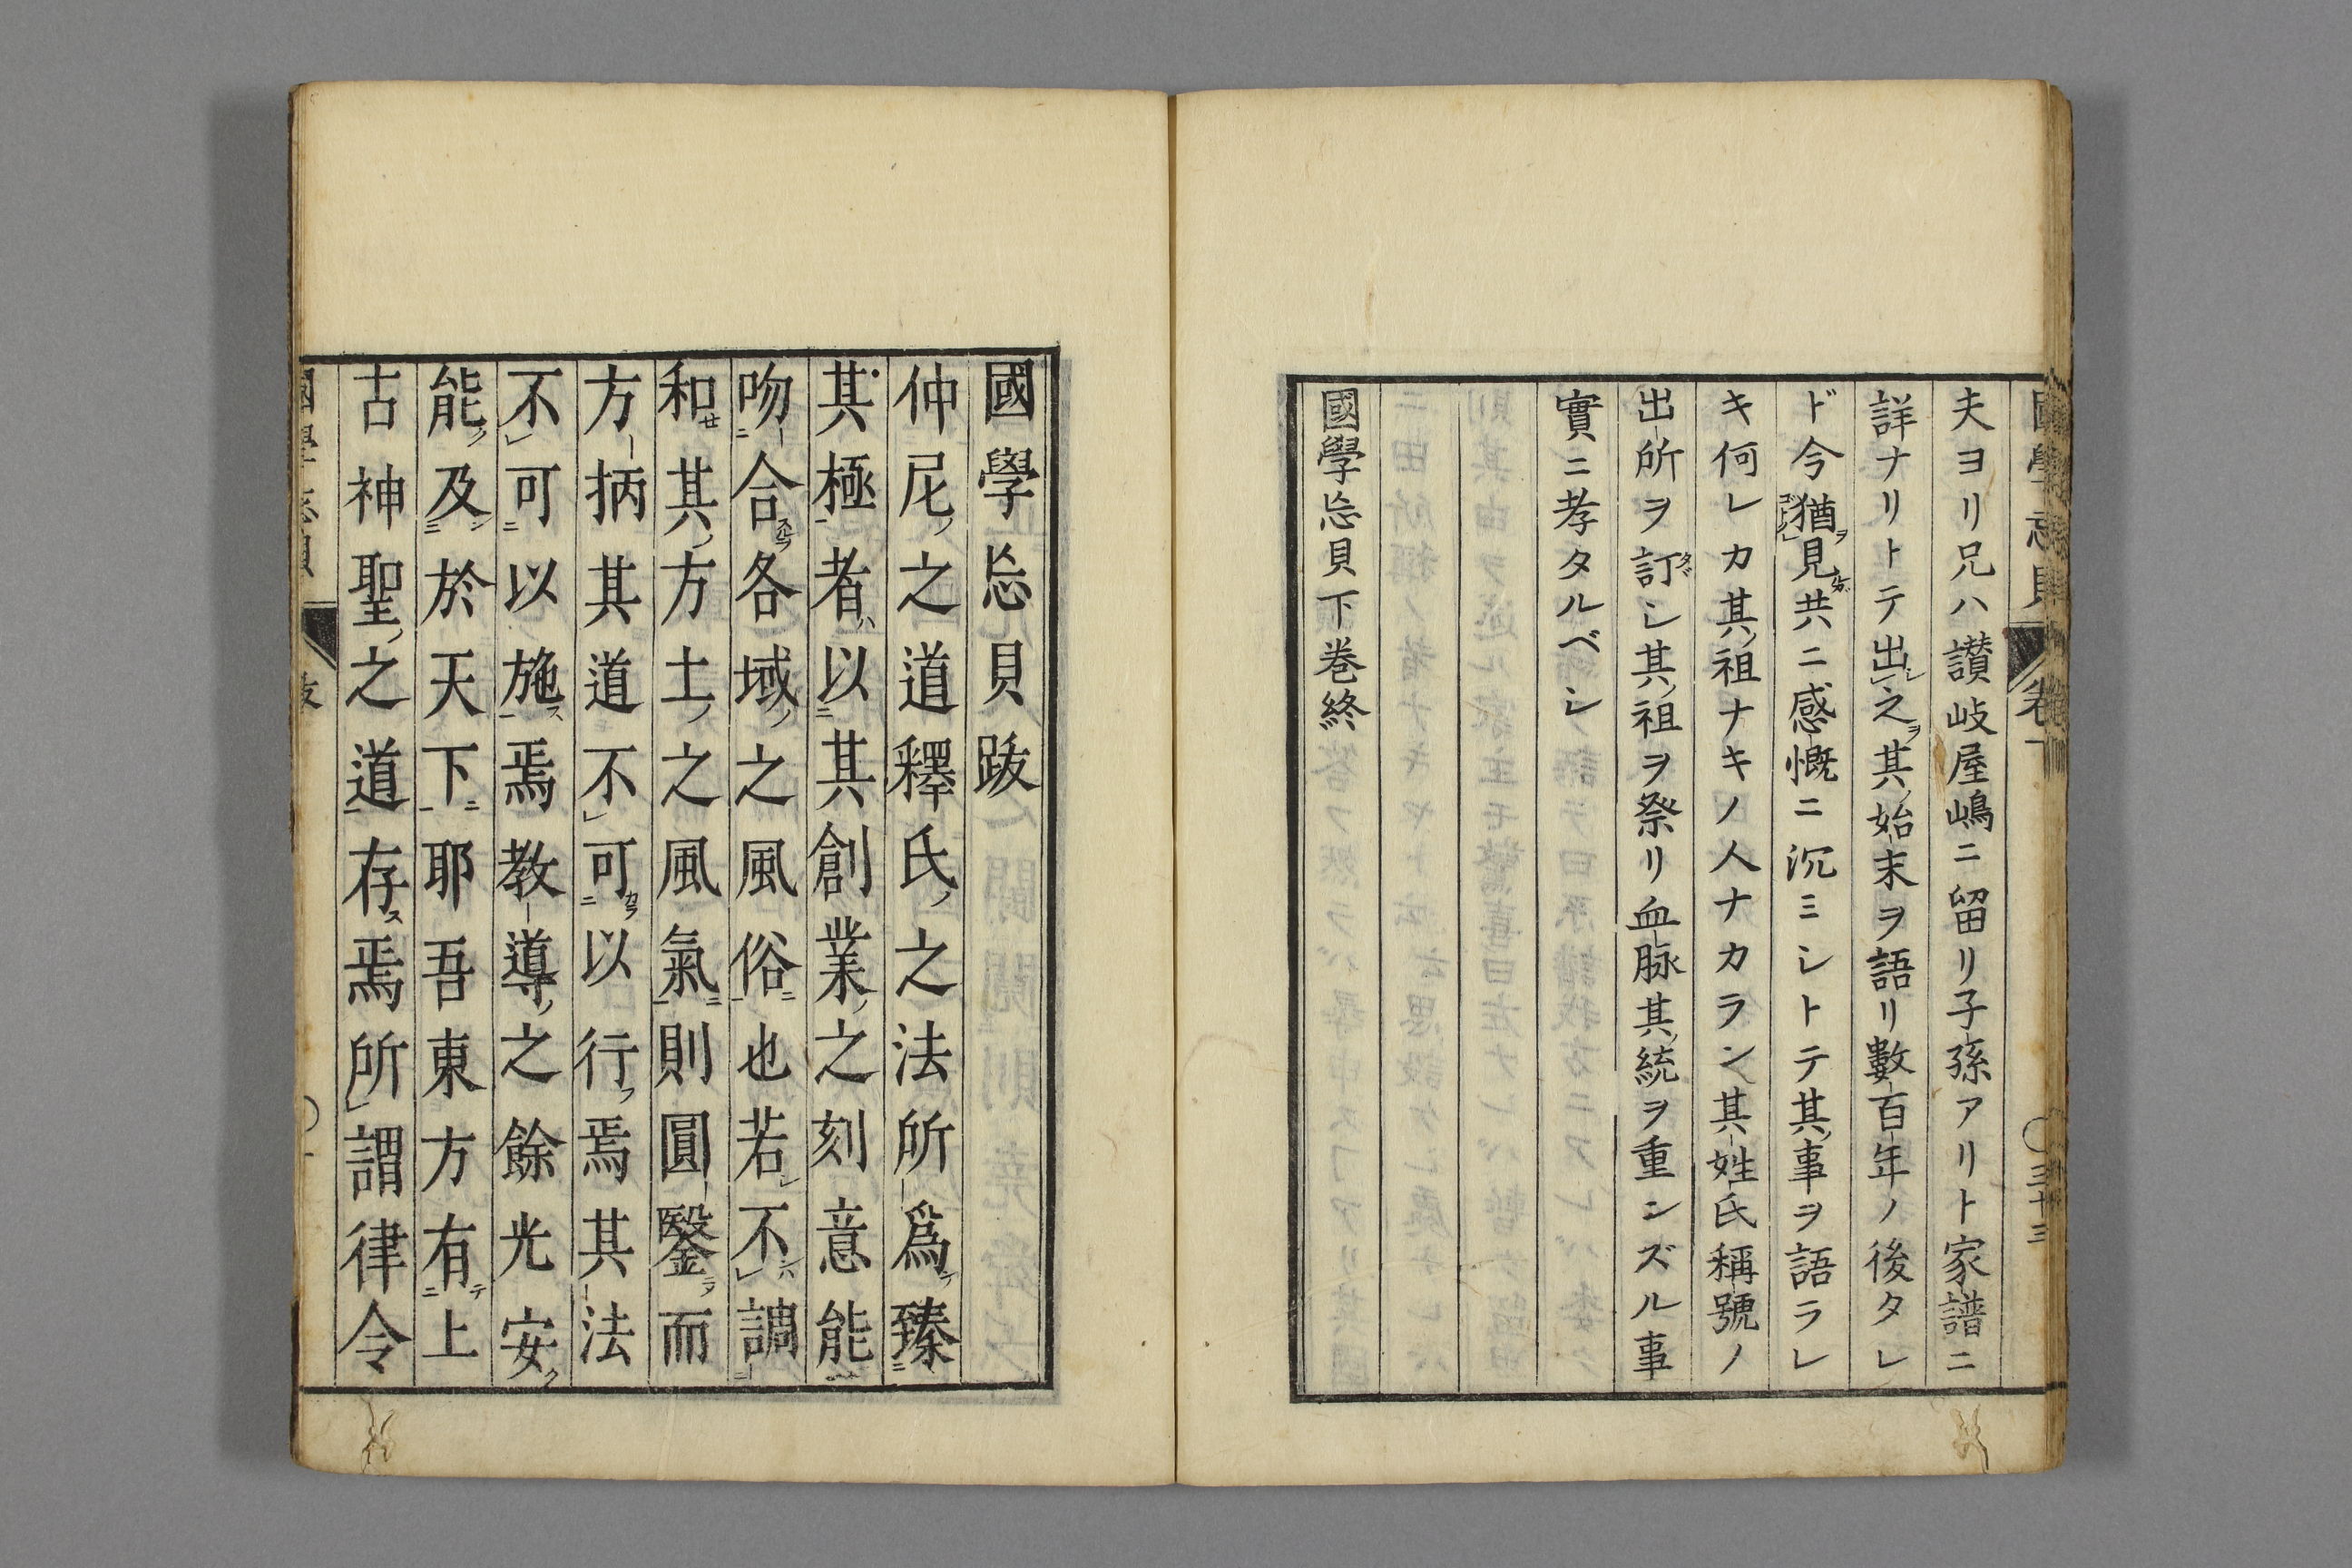 夫ヨリ兄ハ讃岐屋嶋ニ留リ子孫アリト家譜ニ
詳ナリトテ出之其始末ヲ語リ數百年ノ後タレ
ド今猶見共ニ感慨ニ沉ミシトテ其事ヲ語ラレ
キ何レカ其祖ナキノ人ナカラン其姓氏稱號ノ
出所ヲ訂シ其祖ヲ祭リ血脉其統ヲ重ンズル事
實ニ孝タルベシ
國學忘貝下巻終
國學忘貝跋
仲尼之道釋氏之法所爲臻
其極者以其創業之刻意能
吻合各域之風俗也若不調
和其方土之風氣則圓鑿而
方柄其道不可以行焉其法
不可以施焉教導之餘光安
能及於天下耶吾東方有上
古神聖之道存焉所謂律令